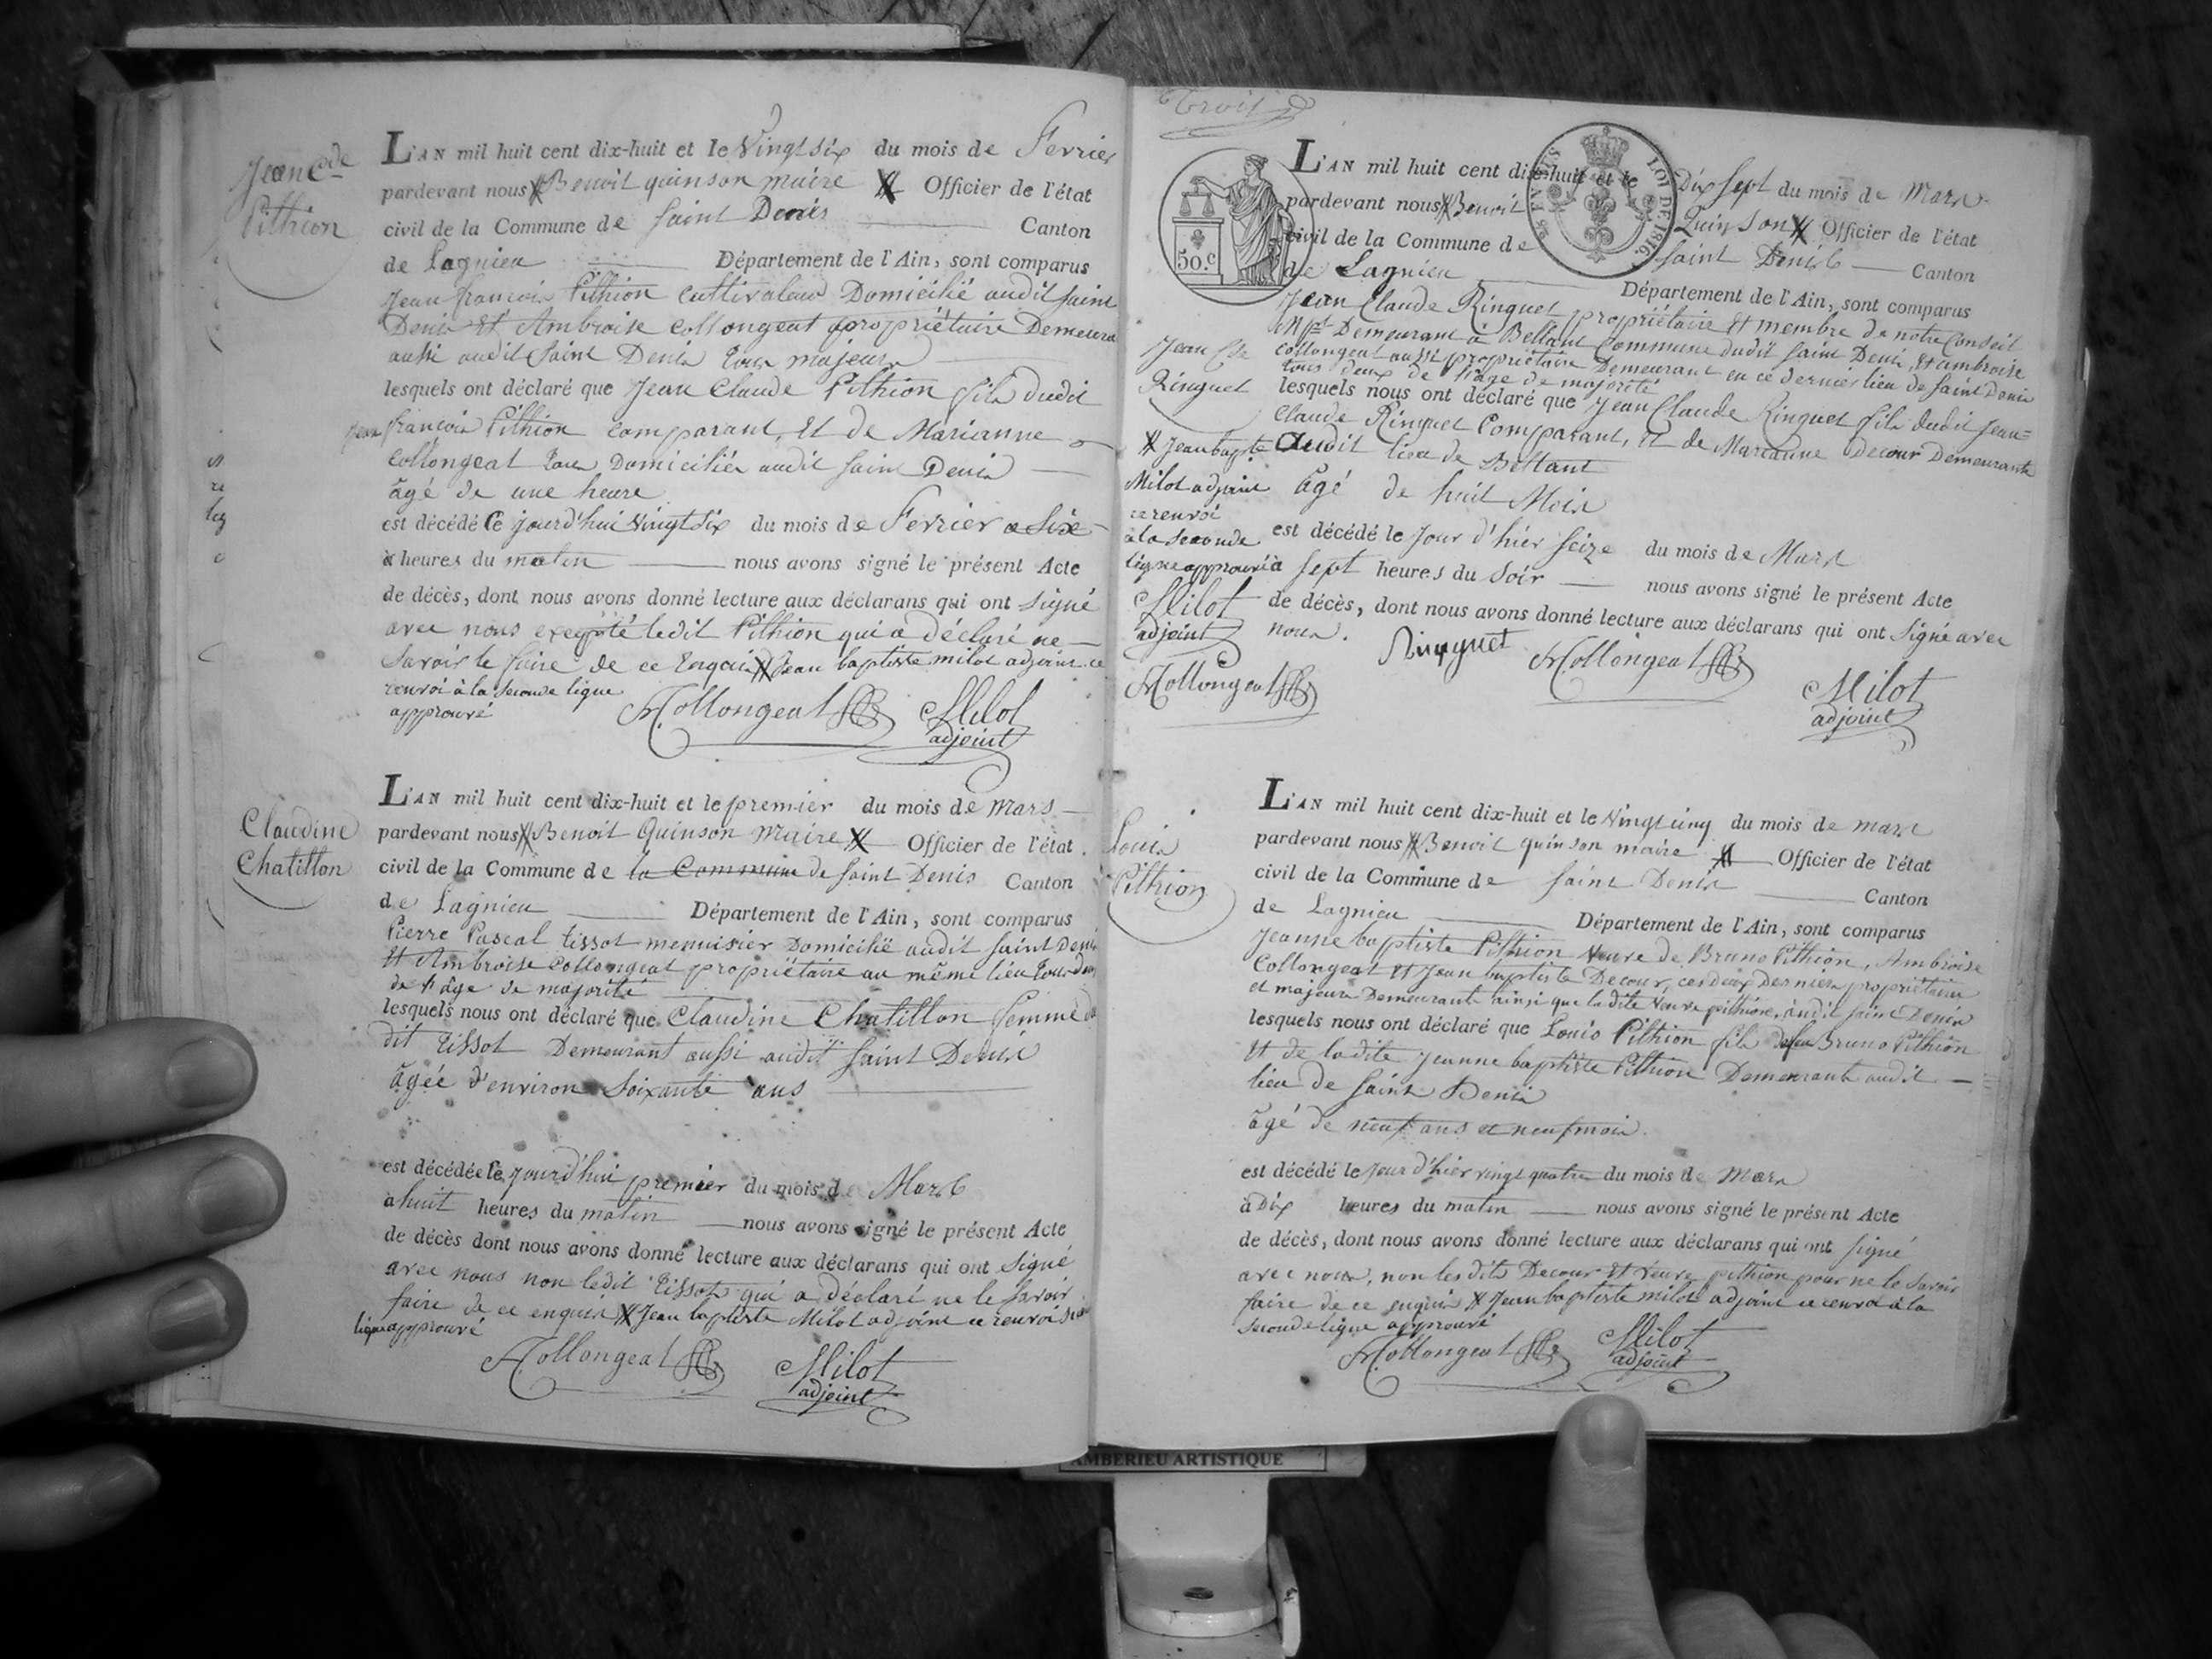 Jean Cde
Pithion
L'AN mil huit cent dix-huit et le Vingt six du mois de Fevrier
pardevant nous Benoit quinson maire Officier de l'état
civil de la Commune de saint Denis Canton
de Lagnieu Département de l'Ain, sont comparus
Jean francois Pithion cultivateur Domicilié audit saint
Denis Et Ambroise Collongeat propriétaire Demeurant
aussi audit Saint Denis tous majeurs
lesquels ont déclaré que Jean Claude Pithion fils dudit
Jean francois Pithion comparant, Et de Marianne
Collongeat tous Domiciliés audit saint Denis
âgé de une heure
est décédé Ce jourd'hui vingt six du mois de Fevrier a Six
heures du matin nous avons signé le présent Acte
de décès, dont nous avons donné lecture aux déclarans qui ont signé
avec nous excepté ledit Pithion qui a déclaré ne
savoir le faire de ce Enquis Jean baptiste milot adjoint ce
renvoi à la seconde ligne
approuvé
Collongeat Milot
adjoint
Claudine
Chatillon
L'AN mil huit cent dix-huit et le premier du mois de mars
pardevant nous Benoit Quinson Maire Officier de l'état
civil de la Commune de la Commune de saint Denis Canton
de Lagnieu Département de l'Ain, sont comparus
Pierre Pascal tissot menuisier Domicilié audit saint Denis
Et Ambroise Collongeat propriétaire au même lieu tous deux
de l'âge de majorité
lesquels nous ont déclaré que Claudine Chatillon femme du
dit tissot Demeurant aussi audit saint Denis
âgée d'environ soixante ans
est décédée Ce jourd'hui premier du mois de Mars
à huit heures du matin nous avons signé le présent Acte
de décès dont nous avons donné lecture aux déclarans qui ont signé
avec nous non ledit tissot qui a déclaré ne le savoir
faire de ce enquis Jean baptiste Milot adjoint ce renvoi
ligne approuvé
Collongeat Milot
adjoint
Trois
50.c
LOI DE 1816
L'AN mil huit cent dix-huit et le Dix sept du mois de Mars
pardevant nous Benoit Quinson Officier de l'état
civil de la Commune de saint Denis Canton
de Lagnieu Département de l'Ain, sont comparus
Jean Claude Ringuet propriétaire Et membre de notre Conseil
Mpal Demeurant à Bettant Commune dudit saint Denis, Et ambroise
Collongeat aussi propriétaire Demeurant en ce dernier lieu de saint Denis
tous deux de l'âge de majorité
lesquels nous ont déclaré que Jean Claude Ringuet fils dudit Jean
Claude Ringuet Comparant, Et de Marianne Decour Demeurants
Audit lieu de Bettant
âgé de huit Mois
est décédé le Jour d'hier seize du mois de Mars
à sept heures du Soir nous avons signé le présent Acte
de décès, dont nous avons donné lecture aux déclarans qui ont signé avec
nous.
Ringuet Collongeat
Milot
adjoint
Jean Cde
Ringuet
Jean bapte
Milot adjoint
ce renvoi
à la seconde
ligne approuvé
Milot
adjoint
Collongeat
Louis
Pithion
L'AN mil huit cent dix-huit et le Vingt cinq du mois de mars
pardevant nous Benoit quinson maire Officier de l'état
civil de la Commune de saint Denis Canton
de Lagnieu Département de l'Ain, sont comparus
Jeanne baptiste Pithion Veuve de Bruno Pithion, Ambroise
Collongeat Et Jean baptiste Decour, ces deux Derniers propriétaires
et majeurs Demeurants ainsi que ladite Veuve pithion, audit saint Denis
lesquels nous ont déclaré que Louis Pithion fils defeu Bruno Pithion
Et de ladite Jeanne baptiste Pithion Demeurants audit
lieu de saint Denis
âgé de neuf ans et neuf mois
est décédé le jour d'hier vingt quatre du mois de Mars
à Dix heures du matin nous avons signé le présent Acte
de décès, dont nous avons donné lecture aux déclarans qui ont signé
avec nous, non lesdits Decour Et Veuve pithion pour ne le savoir
faire de ce enquis Jean baptiste milot adjoint ce renvoi à la
seconde ligne approuvé
Collongeat Milot
adjoint
AMBERIEU ARTISTIQUE